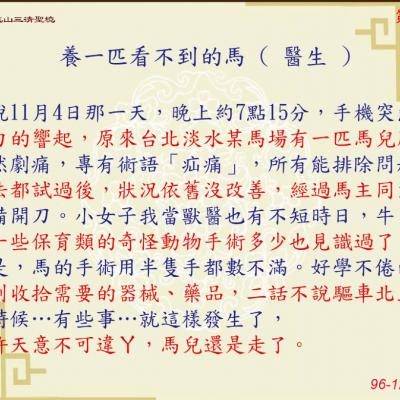 山三清聖境
養一匹看不到的馬 ( 醫生 )
說11月4日那一天，晚上約7點15分，手機突
的響起，原來台北淡水某馬場有一匹馬兒
然劇痛，專有術語「疝痛」，所有能排除問
法都試過後，狀況依舊沒改善，經過馬主同
備開刀。小女子我當獸醫也有不短時日，牛
一些保育類的奇怪動物手術多少也見識過了
是，馬的手術用半隻手都數不滿。好學不倦
到收拾需要的器械、藥品，二話不說驅車北
時候…有些事…就這樣發生了，
許天意不可違ㄚ，馬兒還是走了。
96-1